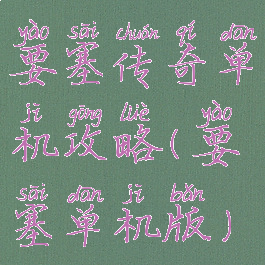 yào sāi chuán qí dān
要塞传奇单
jī gōng lüè yào
机攻略(要
sāi dān jī bǎn
塞单机版)